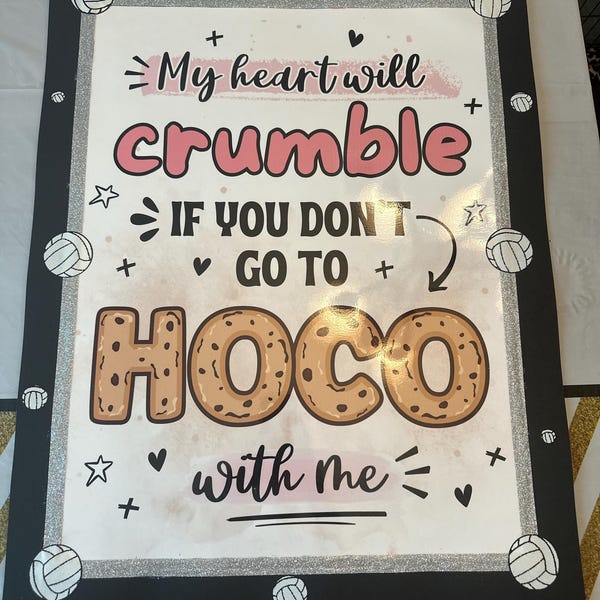 My heart will
crumble
IF YOU DON'T
GO TO
HOCO
with me